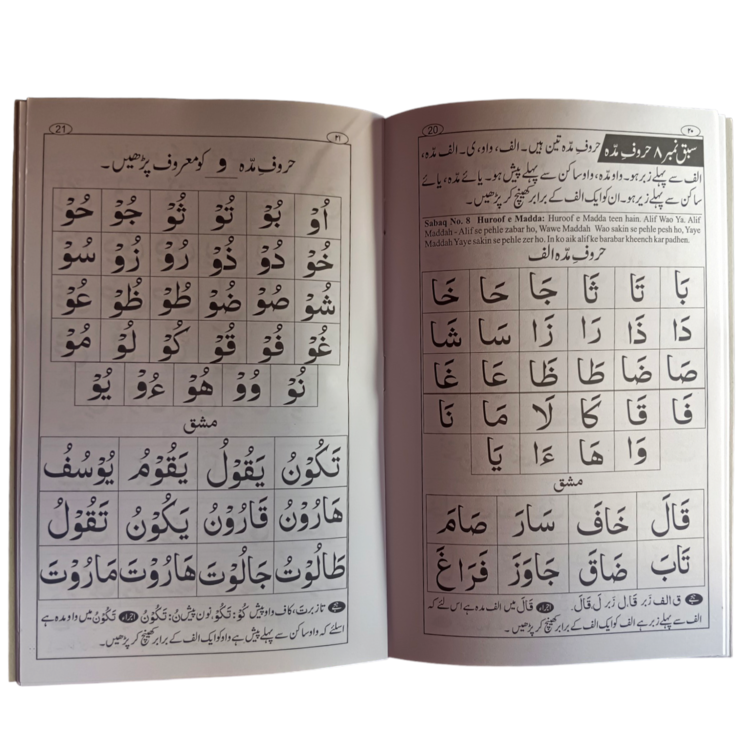 20
۲۰
سبق نمبر ۸ حروفِ مدّہ
حروفِ مدّہ تین ہیں۔ الف، واو، ی۔ الف مدّہ،
الف سے پہلے زبر ہو۔ واو مدّہ، واو ساکن سے پہلے پیش ہو۔ یائے مدّہ، یائے
ساکن سے پہلے زیر ہو۔ ان کو ایک الف کے برابر کھینچ کر پڑھیں۔
Sabaq No. 8 Huroof e Madda: Huroof e Madda teen hain. Alif Wao Ya. Alif
Maddah - Alif se pehle zabar ho, Wawe Maddah Wao sakin se pehle pesh ho, Yaye
Maddah Yaye sakin se pehle zer ho. In ko aik alif ke barabar kheench kar padhen.
حروفِ مدّہ الف
بَا تَا ثَا جَا حَا خَا
دَا ذَا رَا زَا سَا شَا
صَا ضَا طَا ظَا عَا غَا
فَا قَا كَا لَا مَا نَا
وَا هَا ءَا يَا
مشق
قَالَ خَافَ سَارَ صَامَ
تَابَ ضَاقَ جَاوَزَ فَرَاغَ
ق الف زَبر قَا، ل زَبر لَ قَالَ۔ قَالَ میں الف مدہ ہے اس لئے کہ
الف سے پہلے زبر ہے الف کو ایک الف کے برابر کھینچ کر پڑھیں۔
21
۲۱
حروفِ مدّہ و کو معروف پڑھیں۔
اُوْ بُوْ تُوْ ثُوْ جُوْ حُوْ
خُوْ دُوْ ذُوْ رُوْ زُوْ سُوْ
شُوْ صُوْ ضُوْ طُوْ ظُوْ عُوْ
غُوْ فُوْ قُوْ كُوْ لُوْ مُوْ
نُوْ وُوْ هُوْ ءُوْ يُوْ
مشق
تَكُوْنُ يَقُوْلُ يَقُوْمُ يُوْسُفُ
هَارُوْنُ قَارُوْنُ يَكُوْنُ تَقُوْلُ
طَالُوْتُ جَالُوْتَ هَارُوْتَ مَارُوْتَ
تا زبر تَ، کاف واو پیش كُوْ: تَكُوْ، نون پیش نُ: تَكُوْنُ تَكُوْنُ میں واو مدہ ہے
اسلئے کہ واو ساکن سے پہلے پیش ہے واو کو ایک الف کے برابر کھینچ کر پڑھیں۔